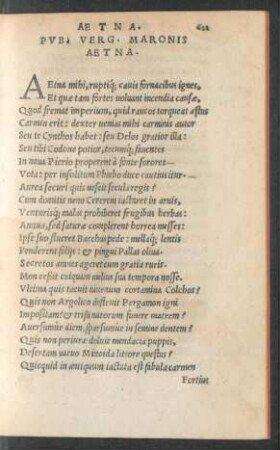 AETNA. 612
PVB. VERG. MARONIS
AETNA.
AEtna mihi, ruptiq; cauis fornacibus ignes,
Et quæ tam fortes uoluant incendia causæ,
Quod fremat imperium, quid raucos torqueat æstus
Carmen erit: dexter uenias mihi carminis autor
Seu te Cynthos habet: seu Delos gratior illa:
Seu tibi Dodone potior, tecumq; fauentes
In noua Pierio properent à fonte sorores
Vota: per insolitum Phœbo duce cautius itur.
Aurea securi quis nescit secula regis?
Cum domitis nemo Cererem iactaret in aruis,
Venturisq; malas prohiberet frugibus herbas:
Annua, sed saturæ complerent horrea messes:
Ipse suo flueret Bacchus pede: mellaq; lentis
Penderent folijs: & pingui Pallas oliua
Secretos amnes ageret cum gratia ruris.
Non cessit cuiquam melius sua tempora nosse.
Vltima quis tacuit iuuenum certamina Colchos?
Quis non Argolico defleuit Pergamon igni
Impositam? & tristi natorum funere matrem?
Auersumue diem, sparsumue in semine dentem?
Quis non periuræ doluit mendacia puppis,
Desertam uacuo Minoida littore questus?
Quicquid in antiquum iactata est fabula carmen
Fortius